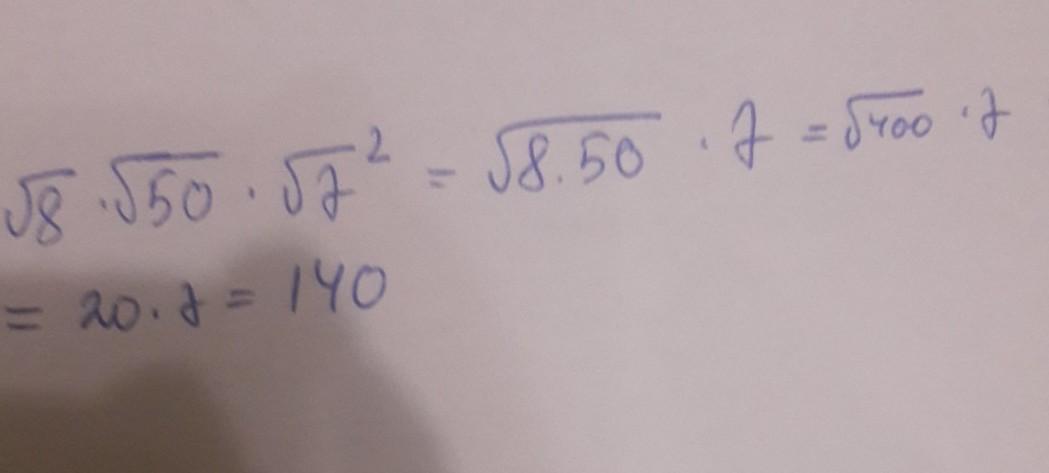 √8 · √50 · √7² = √8.50 · 7 = √400 · 7
= 20 · 7 = 140